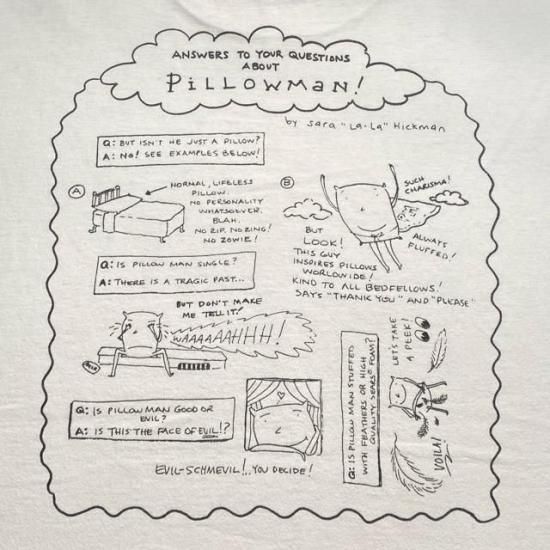 ANSWERS TO YOUR QUESTIONS
ABOUT
PILLOWMAN!
by sara "La-La" Hickman
Q: BUT ISN'T HE JUST A PILLOW?
A: NO! SEE EXAMPLES BELOW!
A
NORMAL, LIFELESS
PILLOW.
NO PERSONALITY
WHATSOEVER.
BLAH.
NO ZIP. NO ZING!
NO ZOWIE!
B
SUCH
CHARISMA!
ALWAYS
FLUFFED!
BUT
LOOK!
THIS GUY
INSPIRES PILLOWS
WORLDWIDE!
KIND TO ALL BEDFELLOWS!
SAYS "THANK YOU" AND "PLEASE"
Q: IS PILLOW MAN SINGLE?
A: THERE IS A TRAGIC PAST...
BUT DON'T MAKE
ME TELL IT!
WAAAAAHHH!
Q: IS PILLOWMAN GOOD OR
EVIL?
A: IS THIS THE FACE OF EVIL!?
EVIL-SCHMEVIL!..YOU DECIDE!
Q: IS PILLOW MAN STUFFED
WITH FEATHERS OR HIGH
QUALITY SEARS® FOAM?
LET'S TAKE
A PEEK!
VOILA!